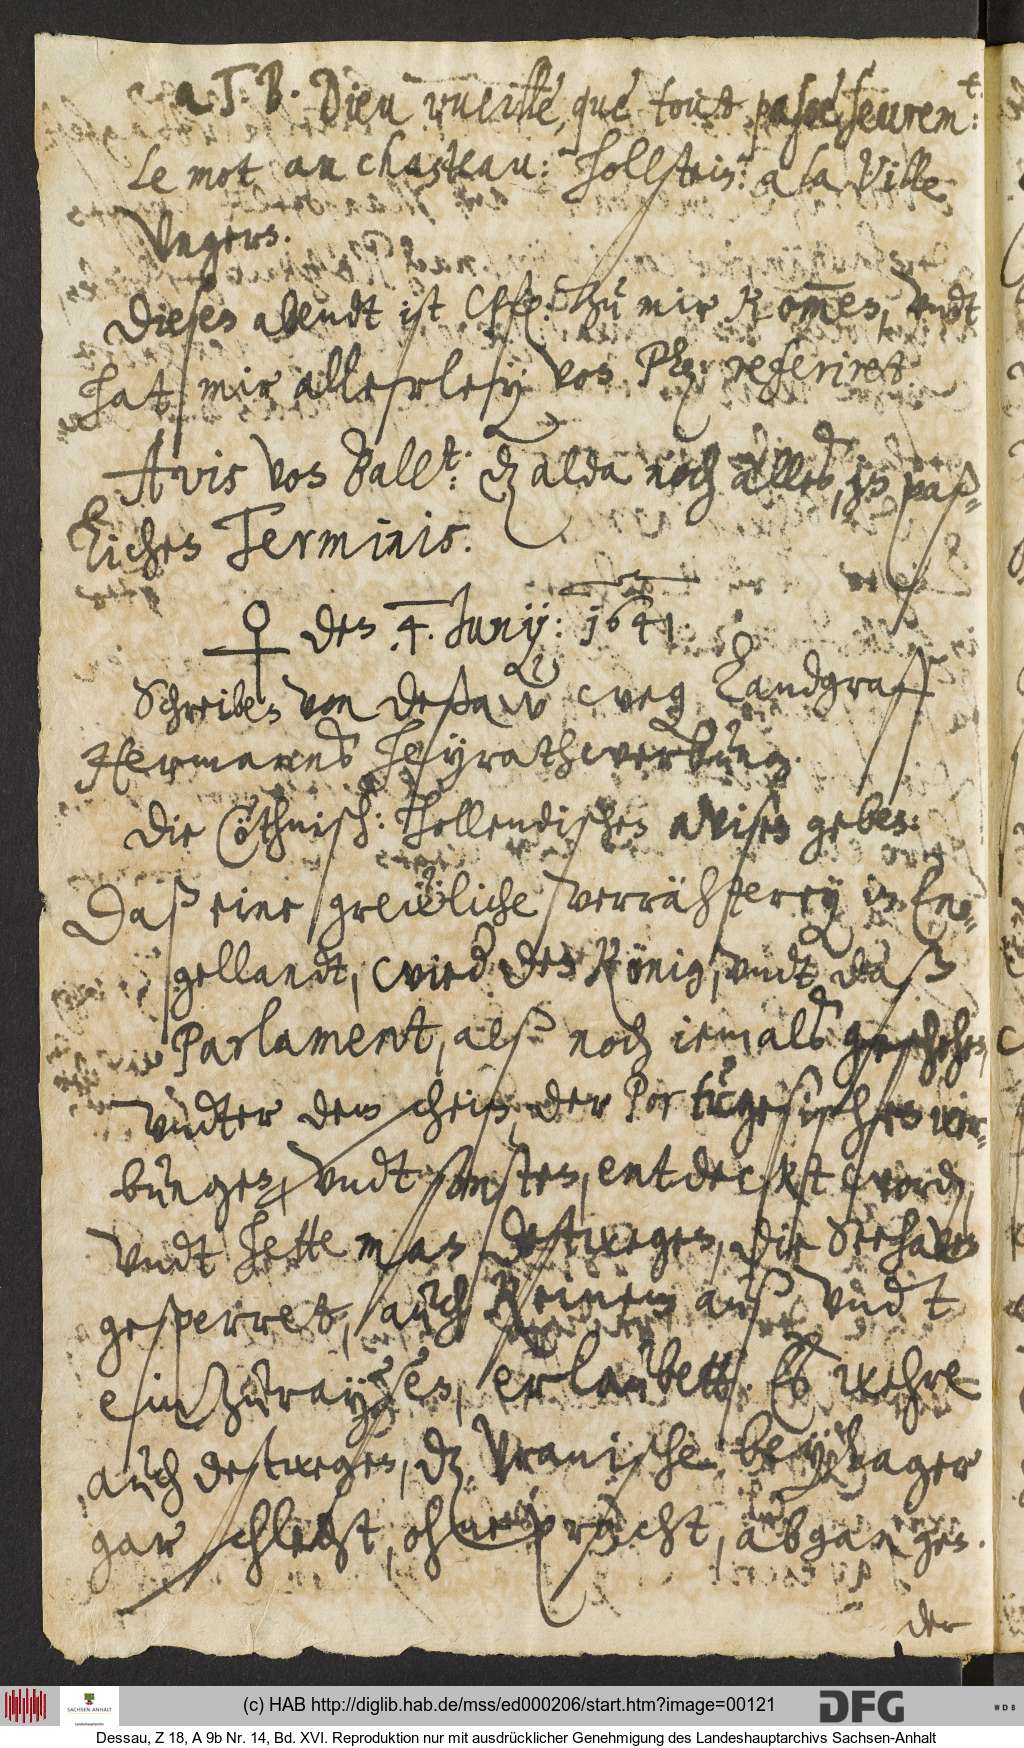 a T. B. Dieu vueille, que tout passe seurem.t:
Le mot au chasteau: Hollstein: a la Ville
Ungern.
Dieses abendt ist zu mir kommen, vndt
hat mir allerley von referiret.
Avis von Ball.t: dz alda noch alles, in paß¬
lichen Terminis.
♀ den 4. Junij: 1641.
Schreiben von Deßaw weg Landgraff
Hermanns heyrathswerbung.
Die Cöthnisch: Hollendischen avisen geben:
Daß eine grewliche verrähterey in En¬
gellandt, wied den König, vndt daß
Parlament, alß noch iemals geschehen,
vndter dem schein, der Portugesischen wer¬
bungen, vndt sonsten, entdeckt word,
vndt hette man deßwegen, die Seehaven
gesperret, auch keinem auß, vndt
einzuraysen, erlaubett. Es wehre
auch deßwegen, dz Vranische beylager
gar schlecht, ohne pracht, abgangen.
der
(c) HAB http://diglib.hab.de/mss/ed000206/start.htm?image=00121
SACHSEN-ANHALT
Landeshauptarchiv
DFG
WDB
Dessau, Z 18, A 9b Nr. 14, Bd. XVI. Reproduktion nur mit ausdrücklicher Genehmigung des Landeshauptarchivs Sachsen-Anhalt